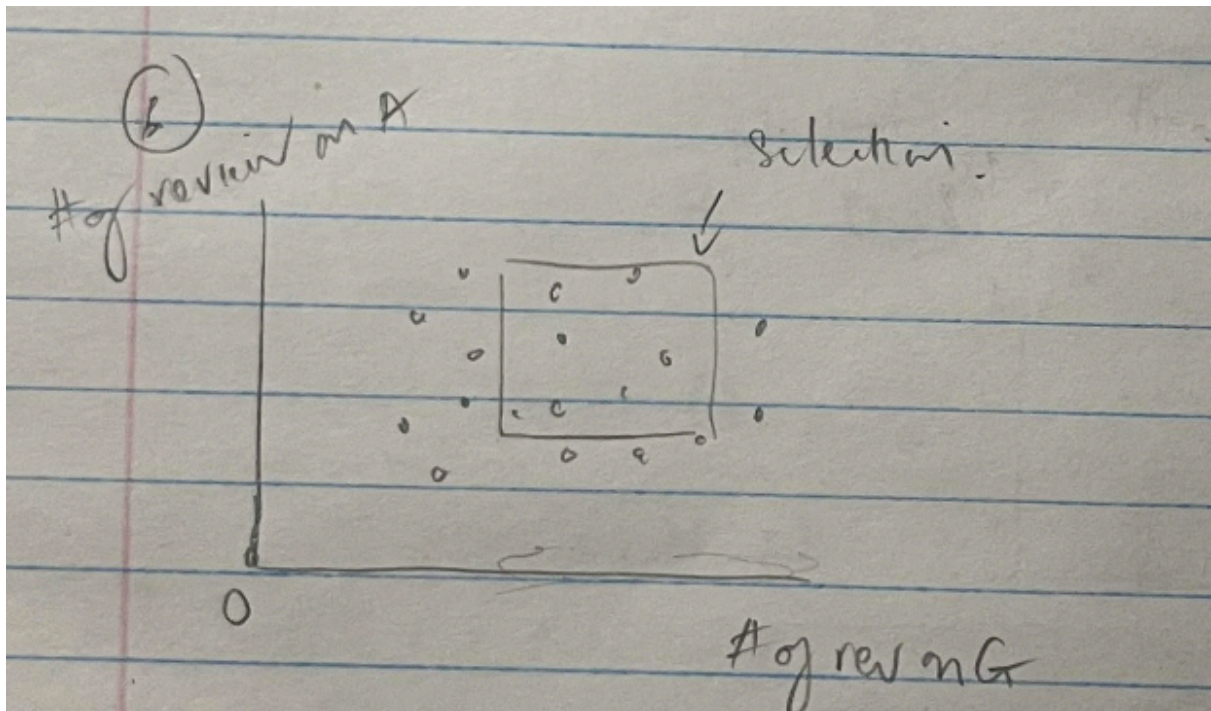 b
# of review on A
Selection.
0
# of rev on G